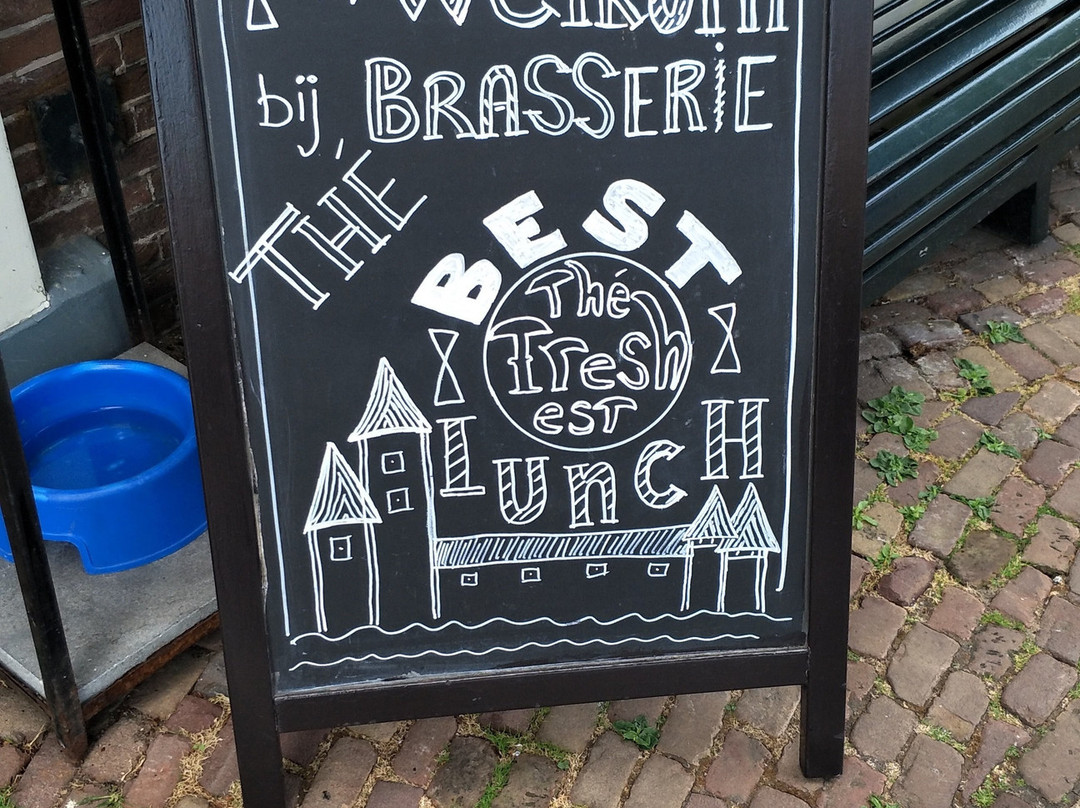 Welkom
bij BRASSERIE
THÉ
BEST
Thé
Fresh
EST
LUNCH